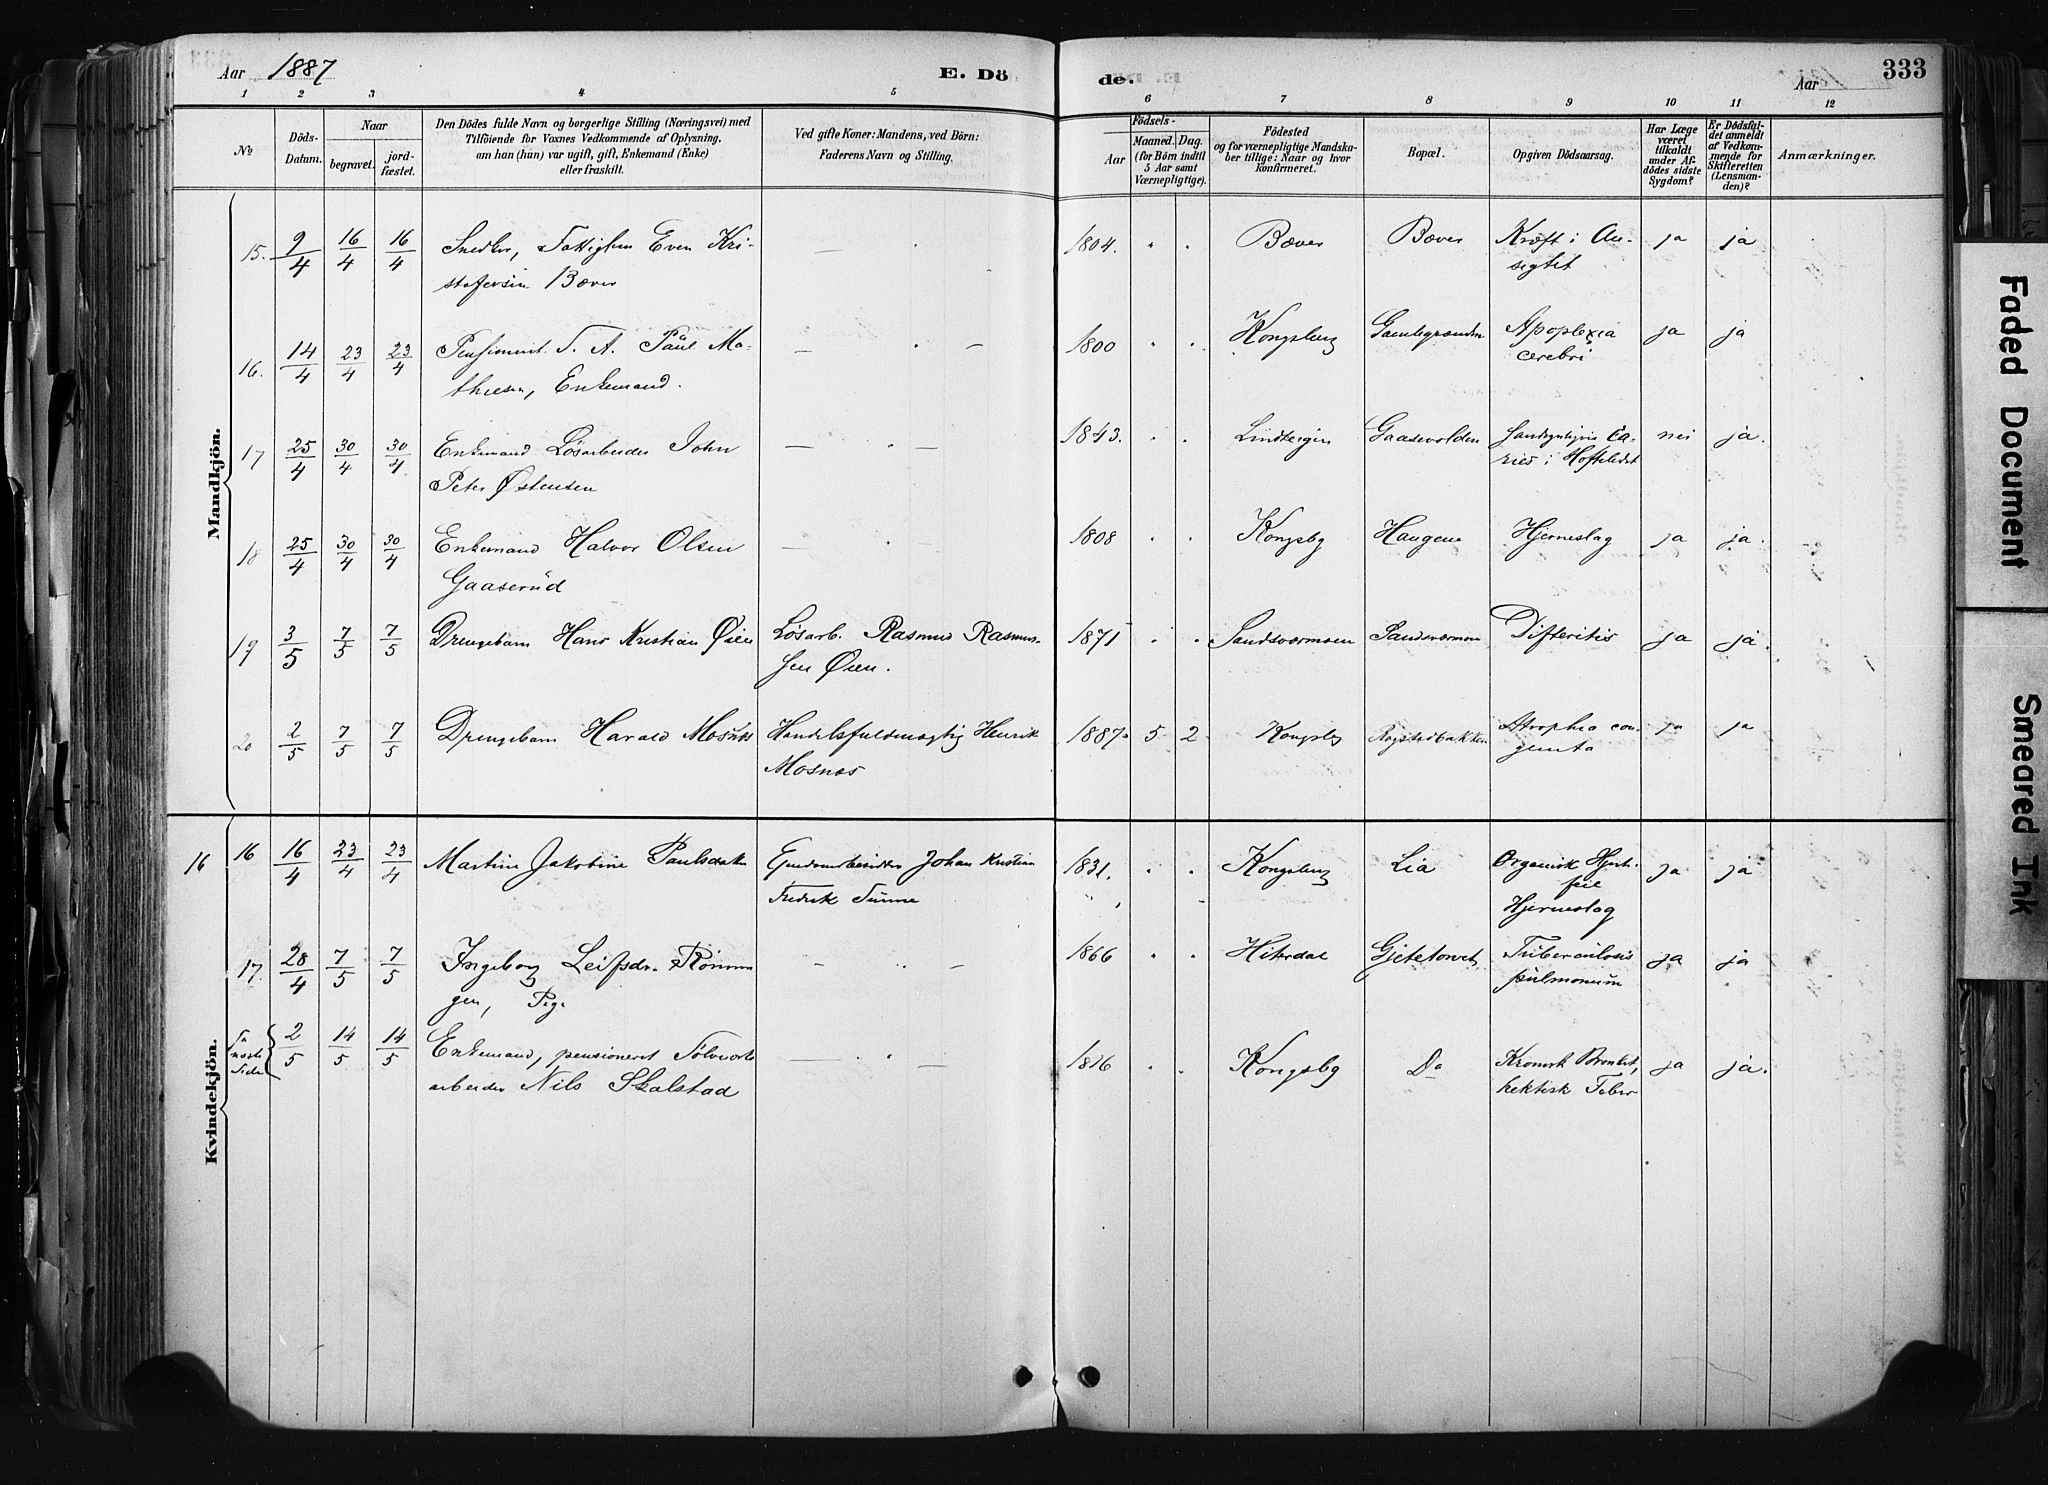 Aar 1887
E. Dö
de.
Aar
333
1 2 3 4 5 6 7 8 9 10 11 12
No
Döds-Datum.
Naar
begravet.
jord-fæstet.
Den Dödes fulde Navn og borgerlige Stilling (Næringsvei) med
Tilföiende for Voxnes Vedkommende af Oplysning,
om han (hun) var ugift, gift, Enkemand (Enke)
eller fraskilt.
Ved gifte Koner: Mandens, ved Börn:
Faderens Navn og Stilling.
Födsels-
Aar
Maaned. Dag.
(for Börn indtil
5 Aar samt
Værnepligtige).
Födested
og for værnepligtige Mandska-
ber tillige: Naar og hvor
konfirmeret.
Bopæl.
Opgiven Dödsaarsag.
Har Læge
været
tilkaldt
under Af-
dödes sidste
Sygdom?
Er Dödsfal-
det anmeldt
af Vedkom-
mende for
Skifteretten
(Lensman-
den)?
Anmærkninger.
Mandkjön.
15. 9/4 16/4 16/4 Snedker, Fattiglem Even Kri- 1804. Bæver Bæver Kræft i An- ja ja
stofersen Bæver segtet
16. 14/4 23/4 23/4 Pensionist. T. A. Paul Ma- — — 1800 Kongsberg Gamlegrænden Apoplexia ja ja
thiesen, Enkemand. cerebri
17 25/4 30/4 30/4 Enkemand Løsarbeider John — — 1843. Gaasevolden Ca- nei ja.
Peter Østensen ries i Hofteledet
18 25/4 30/4 30/4 Enkemand Halvor Olsen — — 1808 Kongsbg Haugene Hjerneslag ja ja.
Gaaserud
19 3/5 7/5 7/5 Drengebarn Hans Kristian Øien Løsarb. Rasmus Rasmus- 1871 Sandsværmoen Sandsværmoen Difteritis ja ja.
sen Øien.
20 2/5 7/5 7/5 Drengebarn Harald Mosnæs Handelsfuldmægtig Henrik 1887 5 2 Kongsbg Atrophia con- ja ja
Mosnæs genita
Kvindekjön.
16 16 16/4 23/4 23/4 Martine Jakobine Paulsdatter Eiendomsbesidder Johan Kristian 1831. Kongsberg Lia Organisk Hjerte- ja ja
Fredrik Tunne feil
Hjerneslag
17. 28/4 7/5 7/5 Ingeborg Leifsdr. Rønnin- — — 1866 Hiterdal Gjetetorvet Tuberculosis ja ja
gen, Pige pulmonum
Se næste Side 2/5 14/5 14/5 Enkemand, pensioneret Sølvverks- — — 1816 Kongsbg Do Kronisk Bronkit, ja ja.
arbeider Nils Skalstad hektisk Feber
Faded Document
Smeared Ink